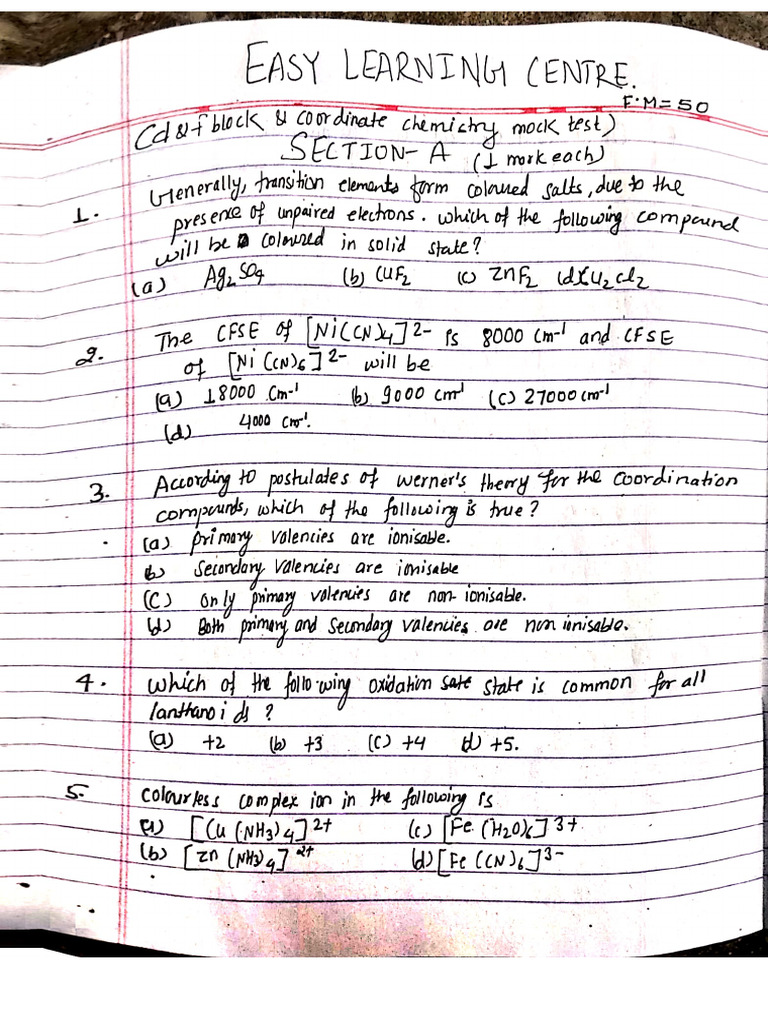 EASY LEARNING CENTRE.
F.M=50
(d & f block & coordinate chemistry mock test)
SECTION-A (1 mark each)
1. Generally, transition elements form coloured salts, due to the
presence of unpaired electrons. which of the following compound
will be coloured in solid state?
(a) Ag2SO4 (b) CuF2 (c) ZnF2 (d) Cu2Cl2
2. The CFSE of [Ni(CN)4]2- is 8000 cm-1 and CFSE
of [Ni(CN)6]2- will be
(a) 18000 cm-1 (b) 9000 cm-1 (c) 27000 cm-1
(d) 4000 cm-1.
3. According to postulates of werner's theory for the coordination
compounds, which of the following is true?
(a) primary valencies are ionisable.
(b) secondary valencies are ionisable
(c) only primary valencies are non-ionisable.
(d) Both primary and secondary valencies are non ionisable.
4. which of the following oxidation state is common for all
lanthanoids?
(a) +2 (b) +3 (c) +4 (d) +5.
5. Colourless complex ion in the following is
(a) [Cu(NH3)4]2+ (c) [Fe(H2O)6]3+
(b) [Zn(NH3)4]2+ (d) [Fe(CN)6]3-